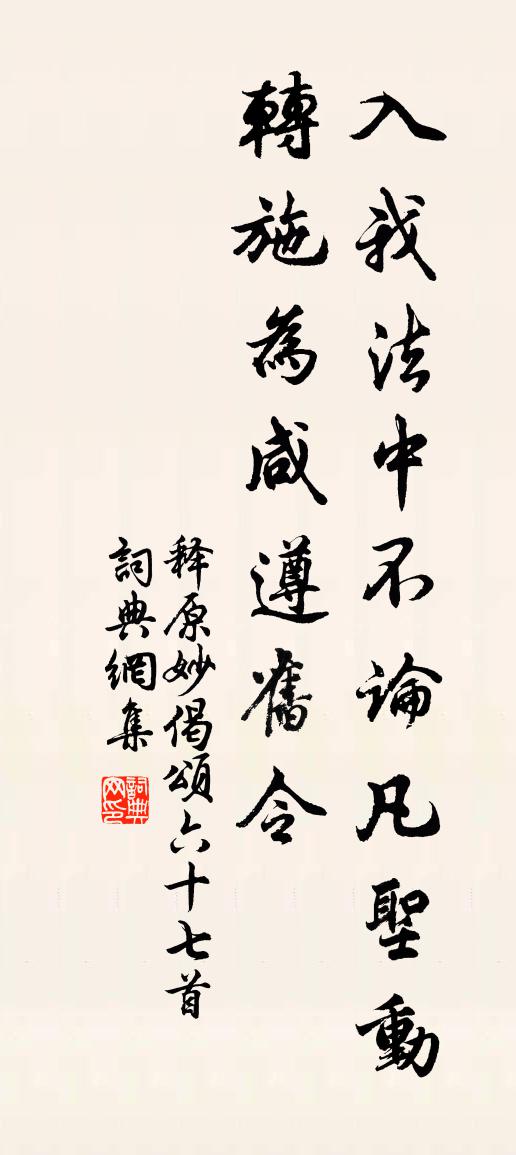 入我法中不論凡聖動
轉施為咸遵舊令
释原妙偈頌六十七首
詞典網集
詞典網印